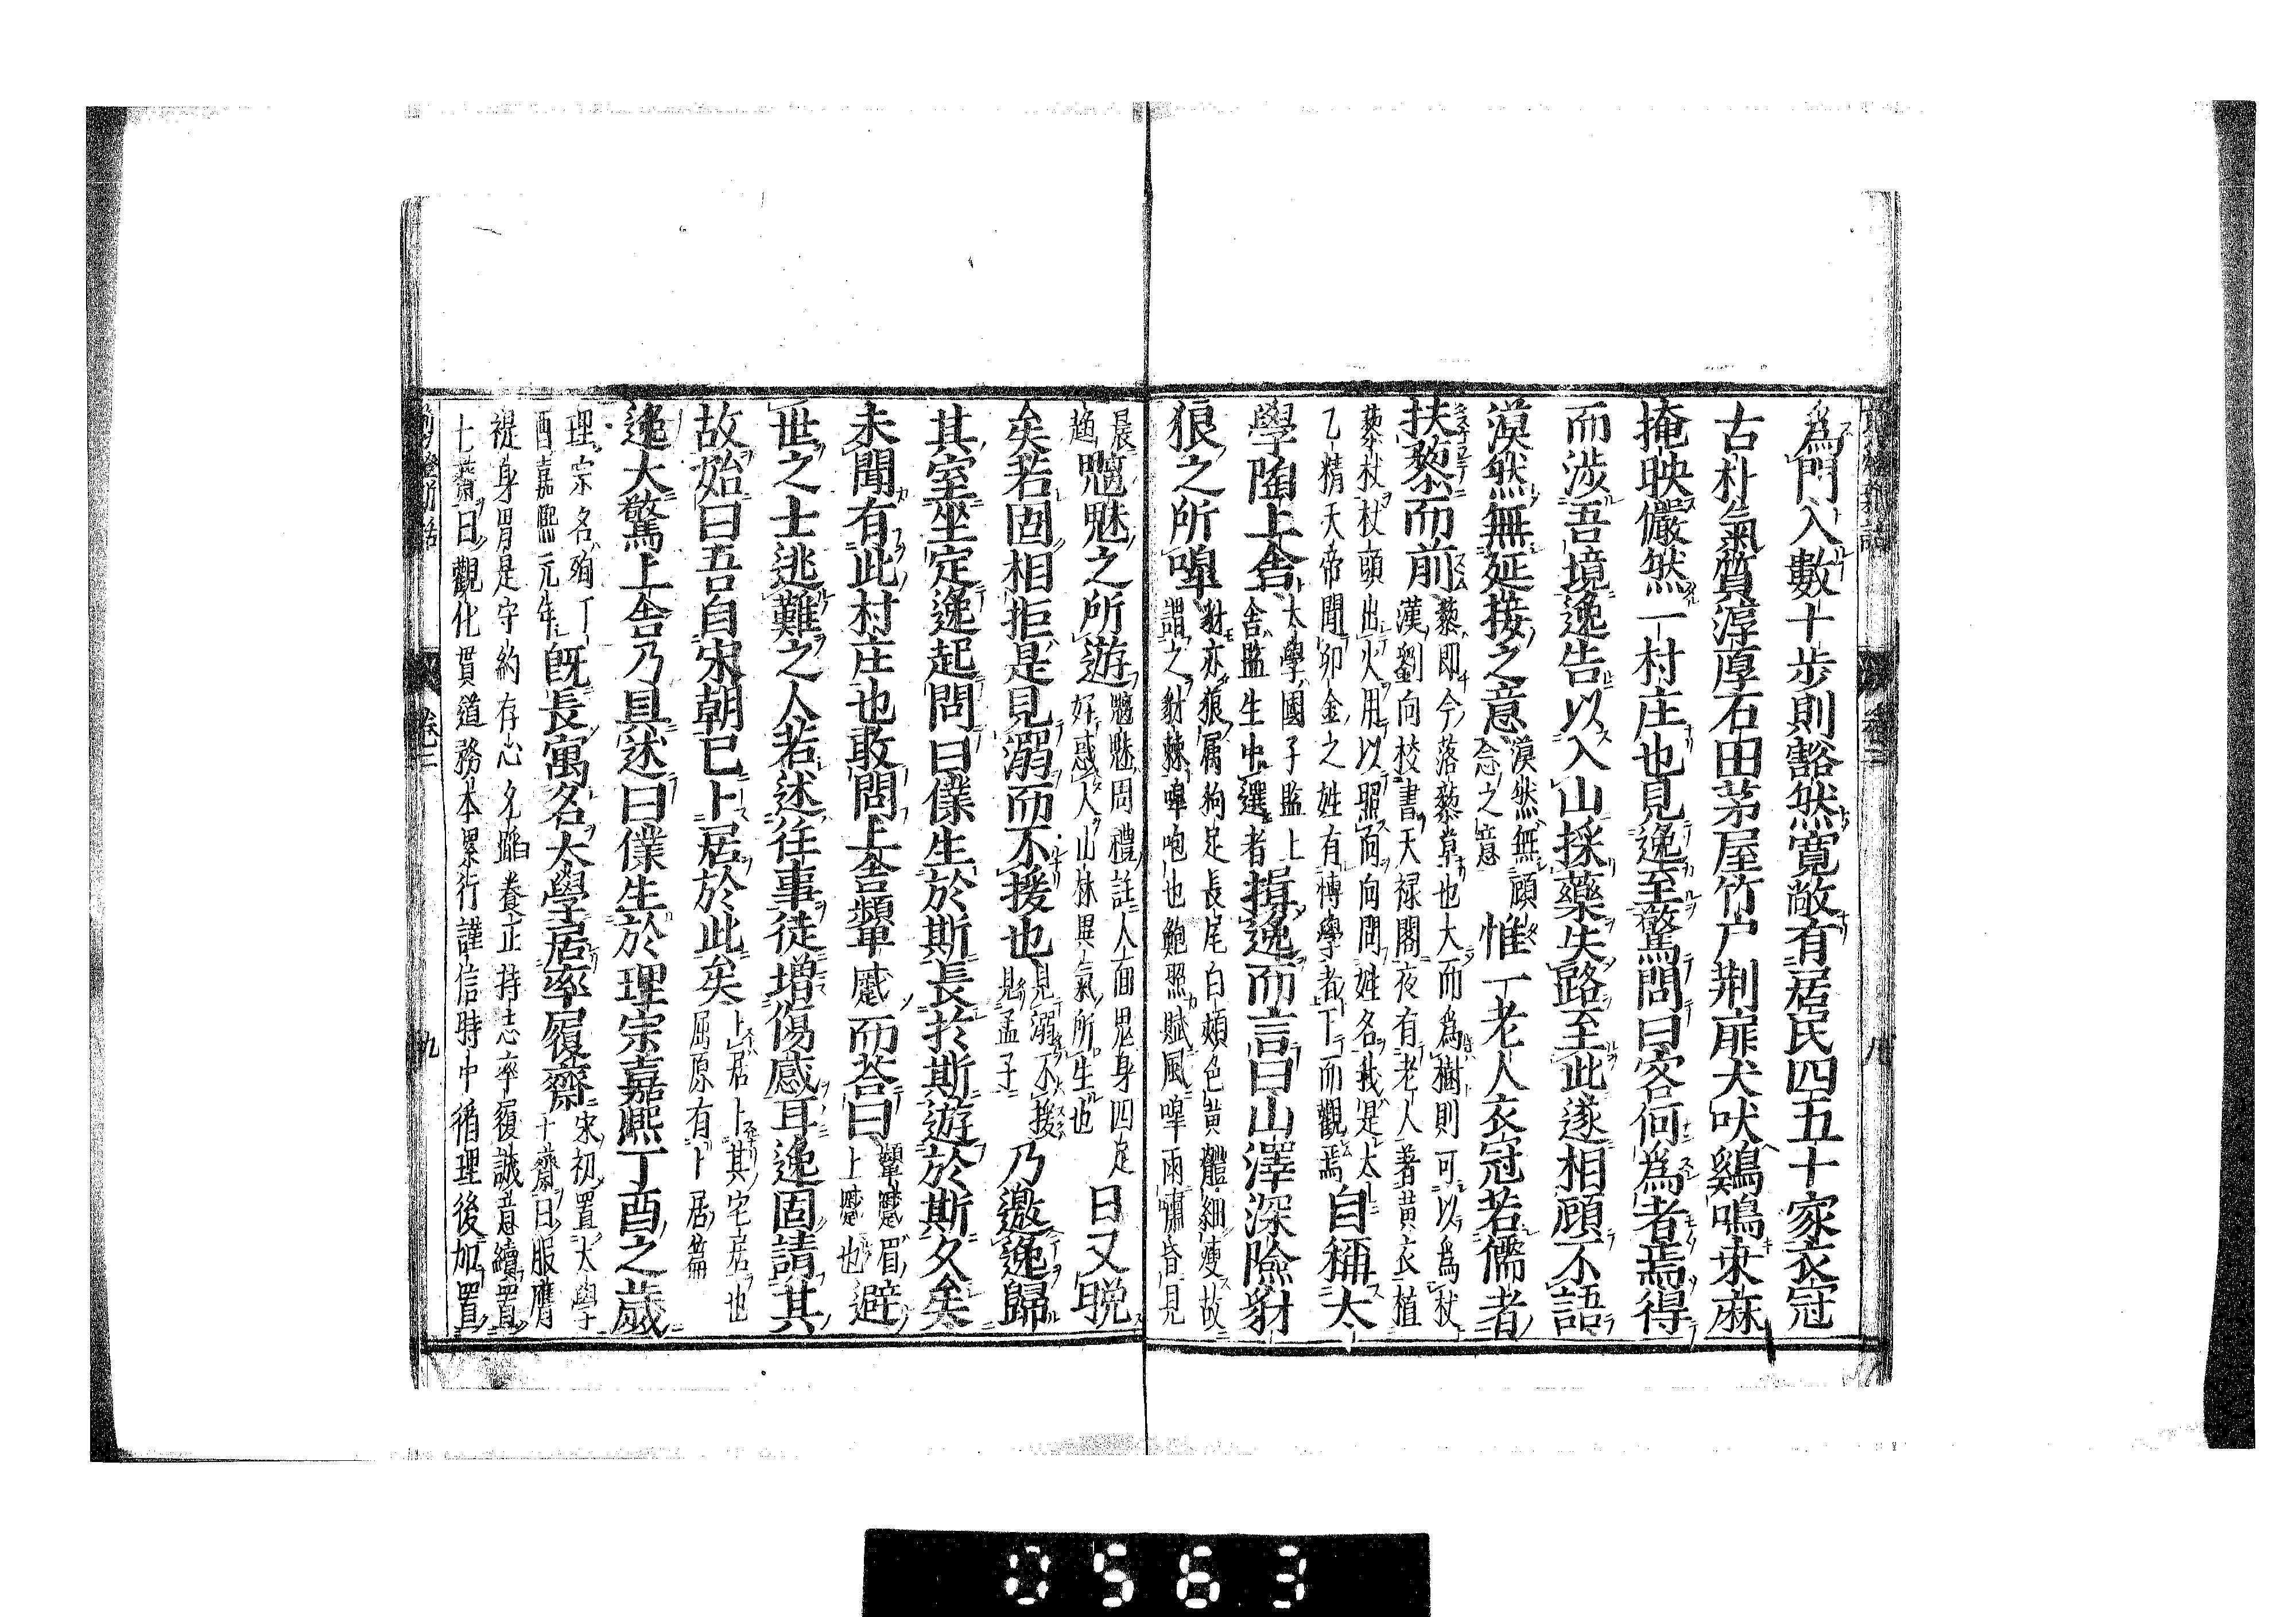 爲門入數十步則豁然寬敞有居民四五十家衣冠
古朴氣質淳厚石田茅屋竹户荆扉犬吠鷄鳴桒麻
掩映儼然一村庄也見逸至驚問曰客何爲者焉得
而涉吾境逸告以入山採藥失路至此遂相顧不語
漠然無延接之意
漠然無顧
念之意
惟一老人衣冠若儒者
扶藜而前
藜即今落藜草也大而爲樹則可以爲杖
漢劉向校書天禄閣夜有老人著黃衣植
藜杖杖頭出火用以照而向問姓名我是太
乙精天帝聞卯金之姓有博學者下而觀焉
自稱太
學陶上舍
太學國子監上
舍監生中選者
揖逸而言曰山澤深險豺
狼之所嘷
豺亦狼属狗足長尾白頰色黃體細瘦故
謂之豺棘嘷咆也鮑照賦風嘷雨嘯昏見
晨
趨
魑魅之所遊
魑魅周禮註人面鬼身四足
好惑人山林異氣所生也
日又晩
矣若固相拒是見溺而不援也
見溺不援
見孟子
乃邀逸歸
其室坐定逸起問曰僕生於斯長於斯遊於斯久矣
未聞有此村庄也敢問上舍顰蹙而荅曰
顰蹙眉
上蹙也
避
世之士逃難之人若述往事徒增傷感耳逸固請其
故始曰吾自宋朝已卜居於此矣
卜居卜其宅居也
屈原有卜居篇
逸大驚上舍乃具述曰僕生於理宗嘉熙丁酉之歲
理宗名殉丁
酉嘉熙元年
旣長寓名太學居率履齋
宋初置太學
十齋曰服膺
禔身習是守約存心允蹈養正持志率履誠意續置
七齋曰觀化貫道務本果行謹信時中循理後加置
卷二
八
卷二
九
0563